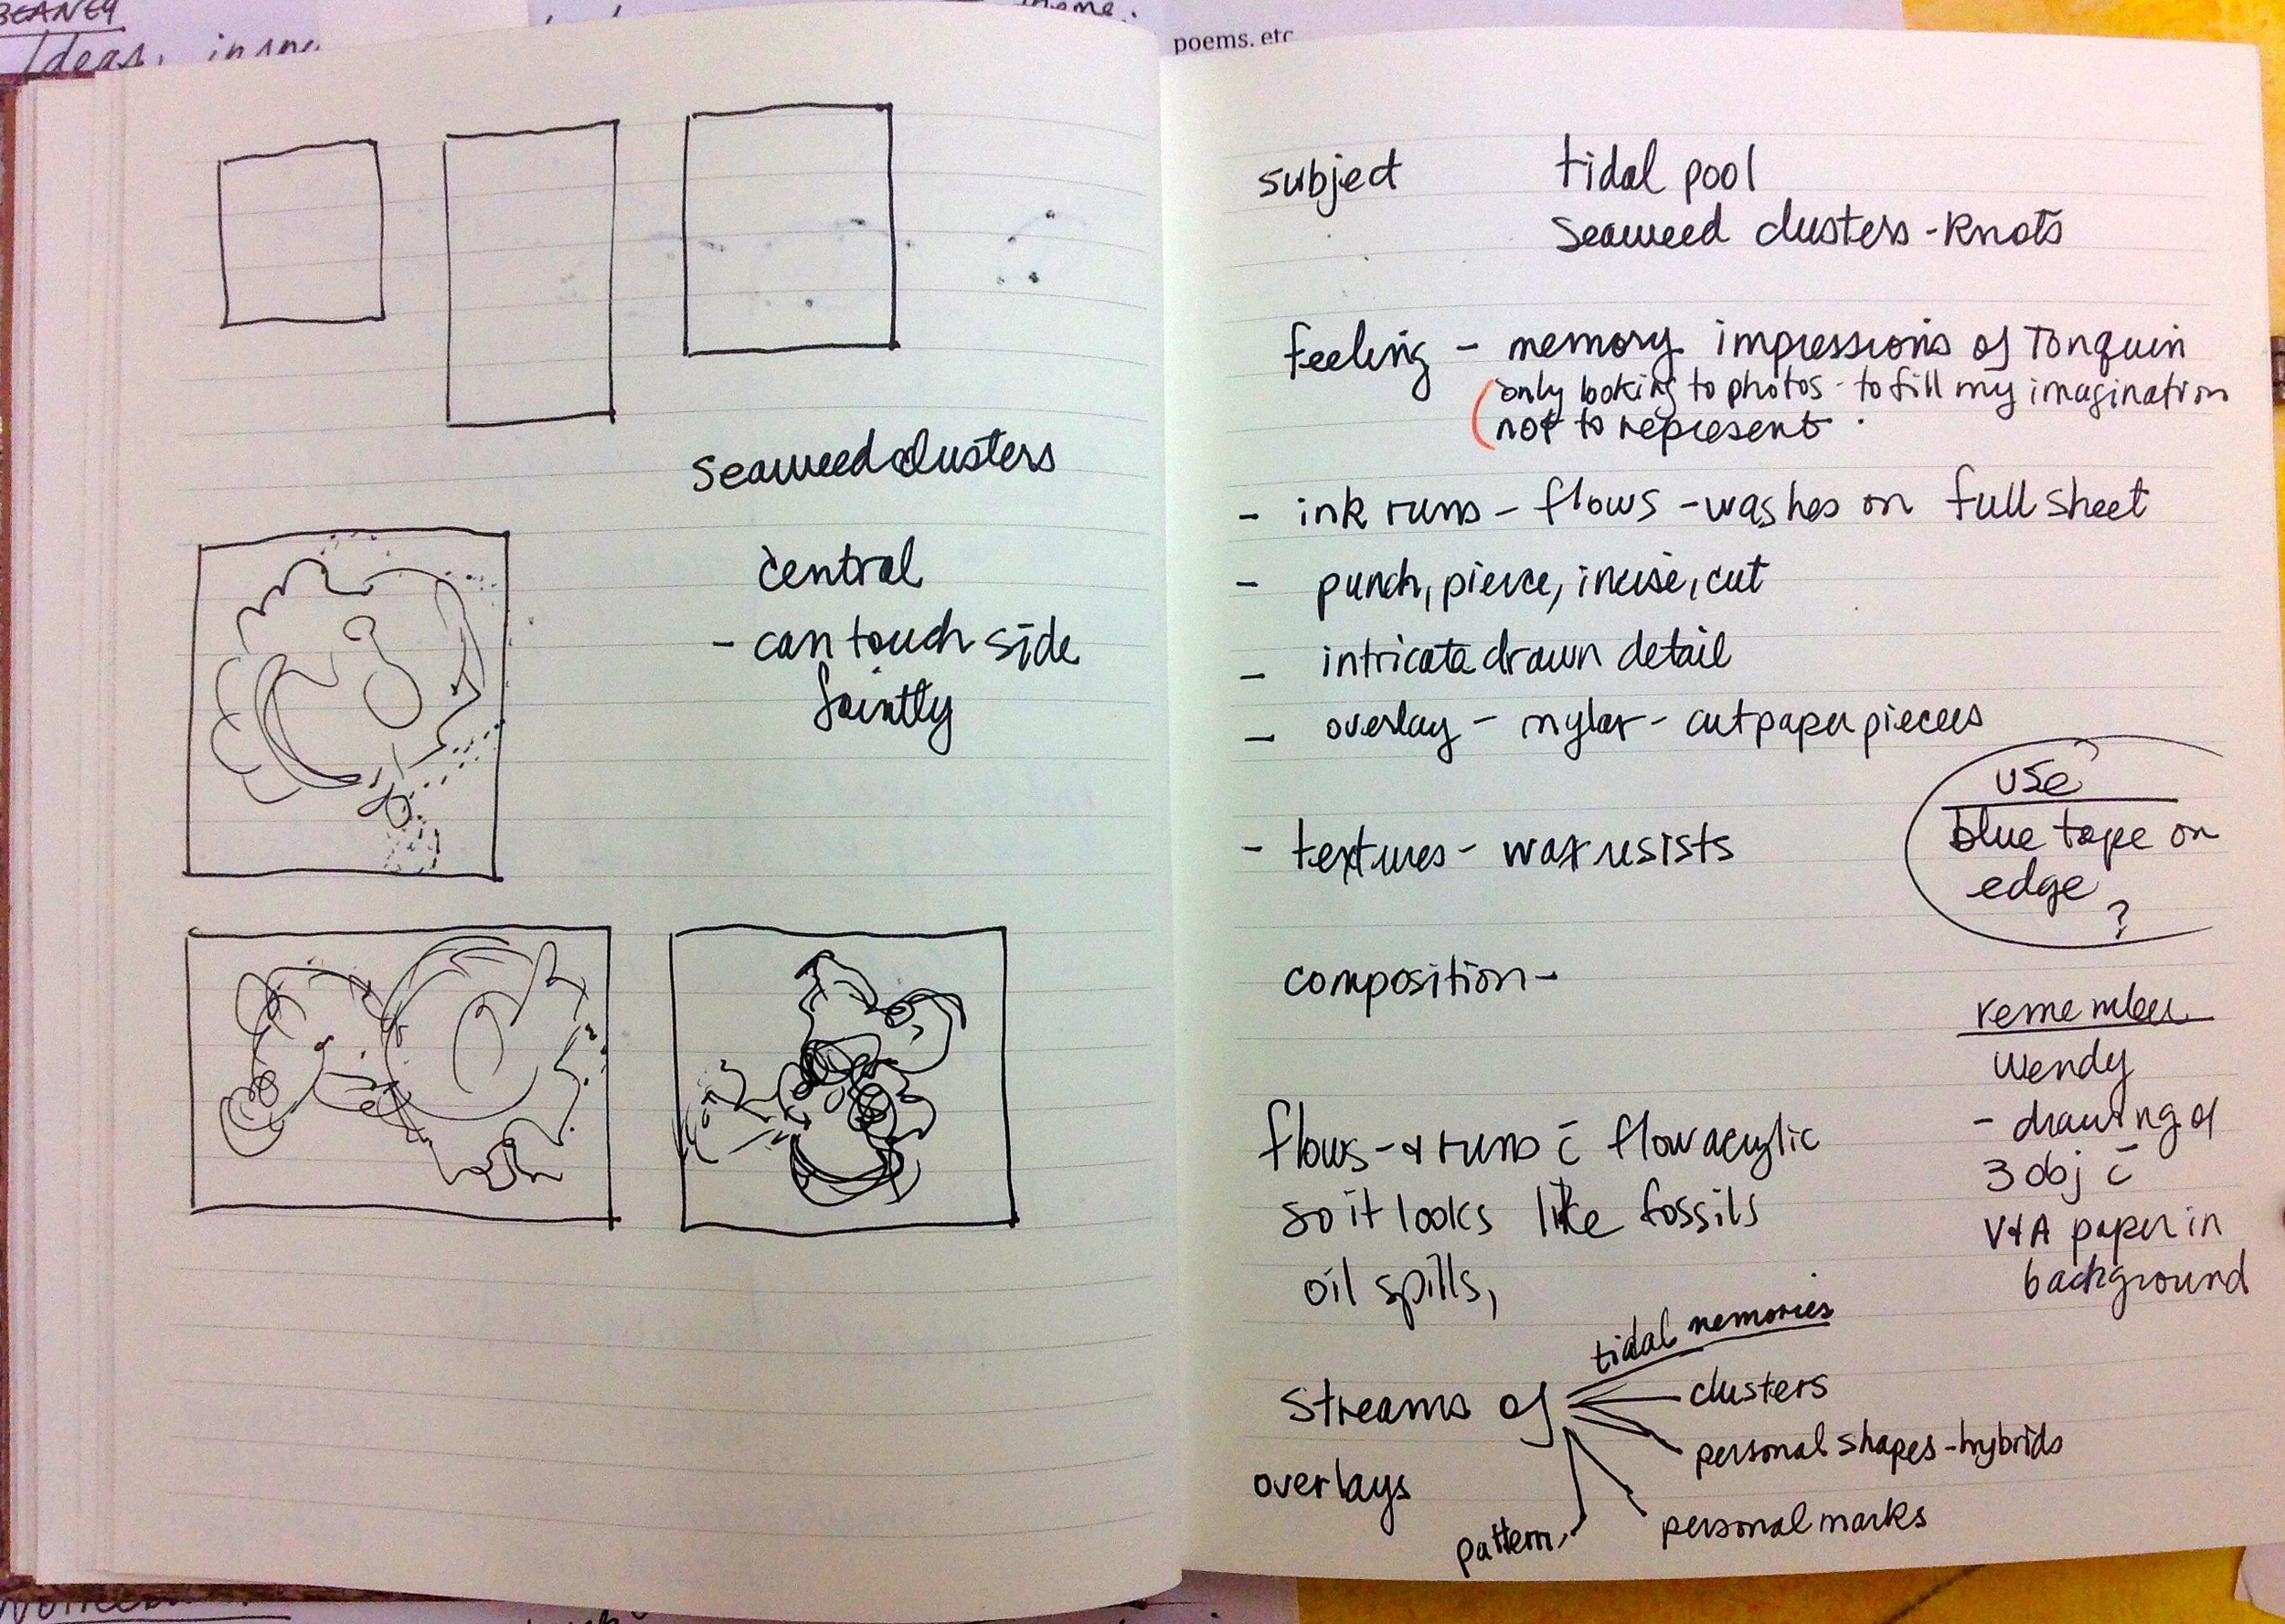 BEANEY
Ideas,
poems. etc
seaweed clusters
central
- can touch side
faintly
subject tidal pool
seaweed clusters - knots
feeling - memory impressions of Tonquin
(only looking to photos - to fill my imagination
not to represent.
- ink runs - flows - washes on full sheet
- punch, pierce, incise, cut
- intricate drawn detail
- overlay - mylar - cut paper pieces
use
blue tape on
edge
?
- textures - wax resists
composition -
remember
Wendy
- drawing of
3 obj c̄
V+A paper in
background
flows - + runs c̄ flow acrylic
so it looks like fossils
oil spills,
tidal memories
streams of
clusters
personal shapes - hybrids
overlays
personal marks
pattern